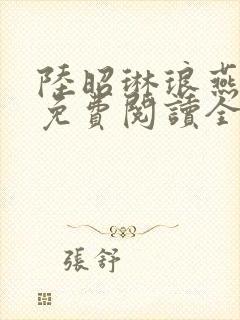 陸昭琳琅燕
免費閱讀全
張舒